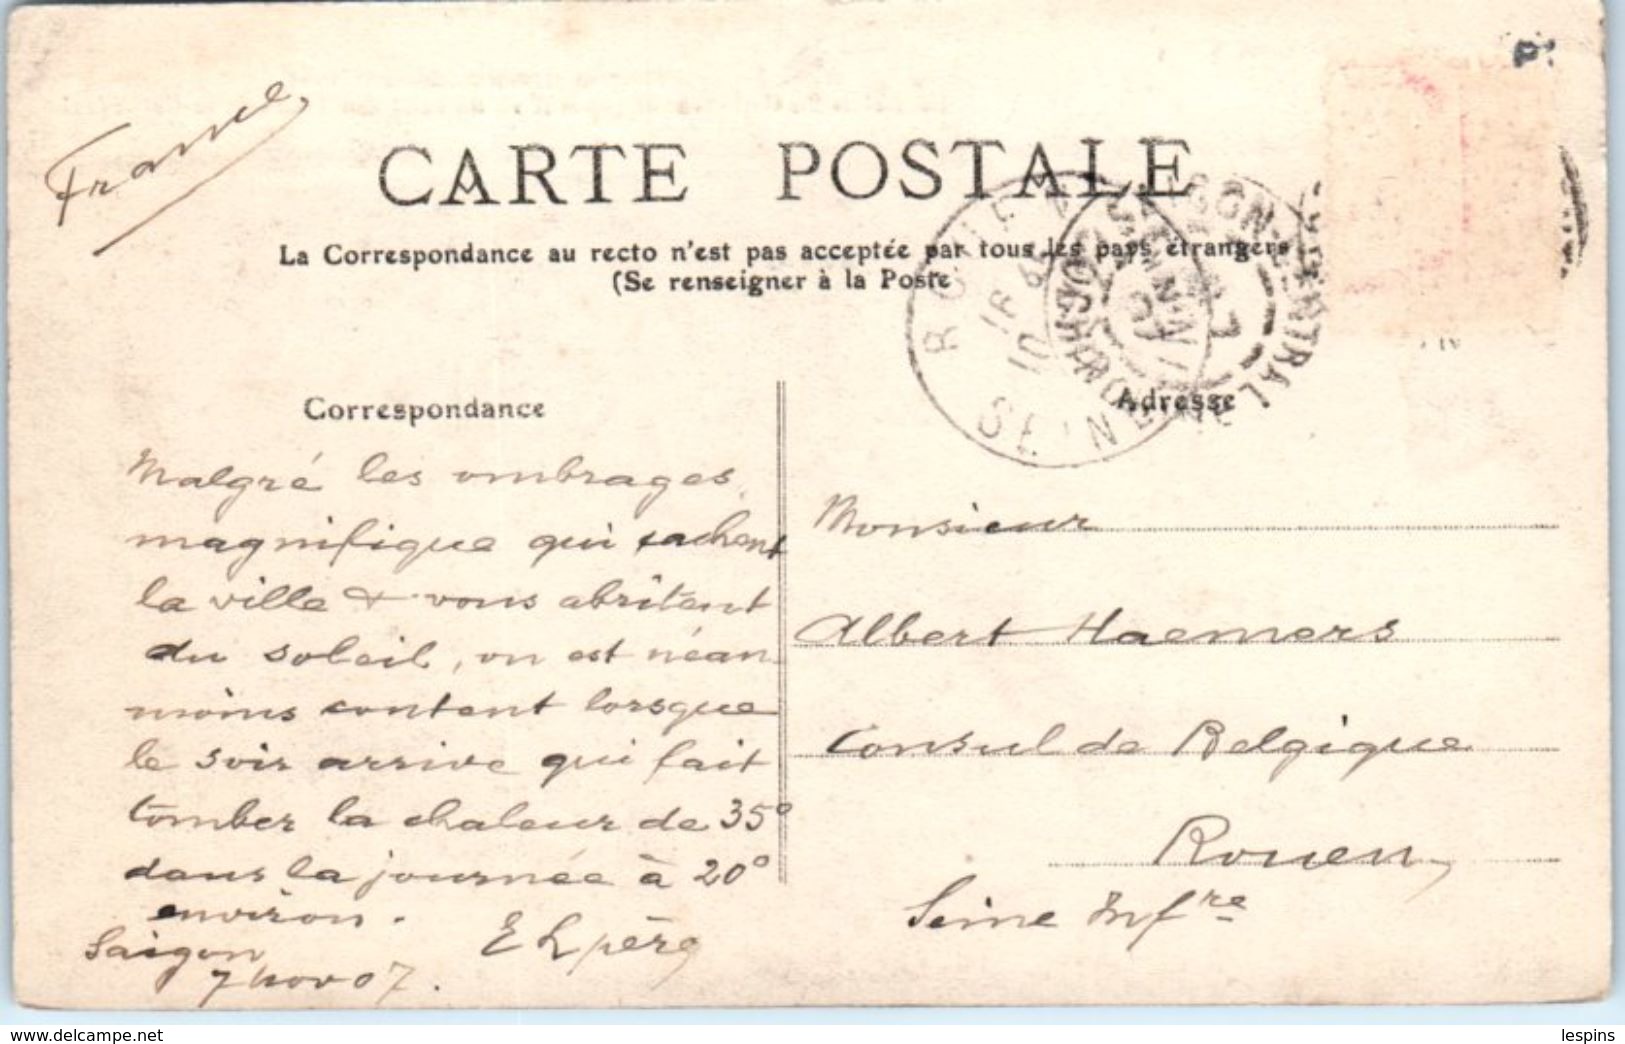 France
CARTE POSTALE
La Correspondance au recto n'est pas acceptée par tous les pays étrangers
(Se renseigner à la Poste
Correspondance
Malgré les ombrages
magnifique qui cachent
la ville & vous abritent
du soleil, on est néan
moins content lorsque
le soir arrive qui fait
tomber la chaleur de 35°
dans la journée à 20°
environ.
Saigon
7 nov 07.
ROUEN
SEINE
SAIGON-CENTRAL
COCHINCHINE
Adresse
Monsieur
Albert Haemers
Consul de Belgique
Rouen,
Seine Infre
www.delcampe.net
lespins